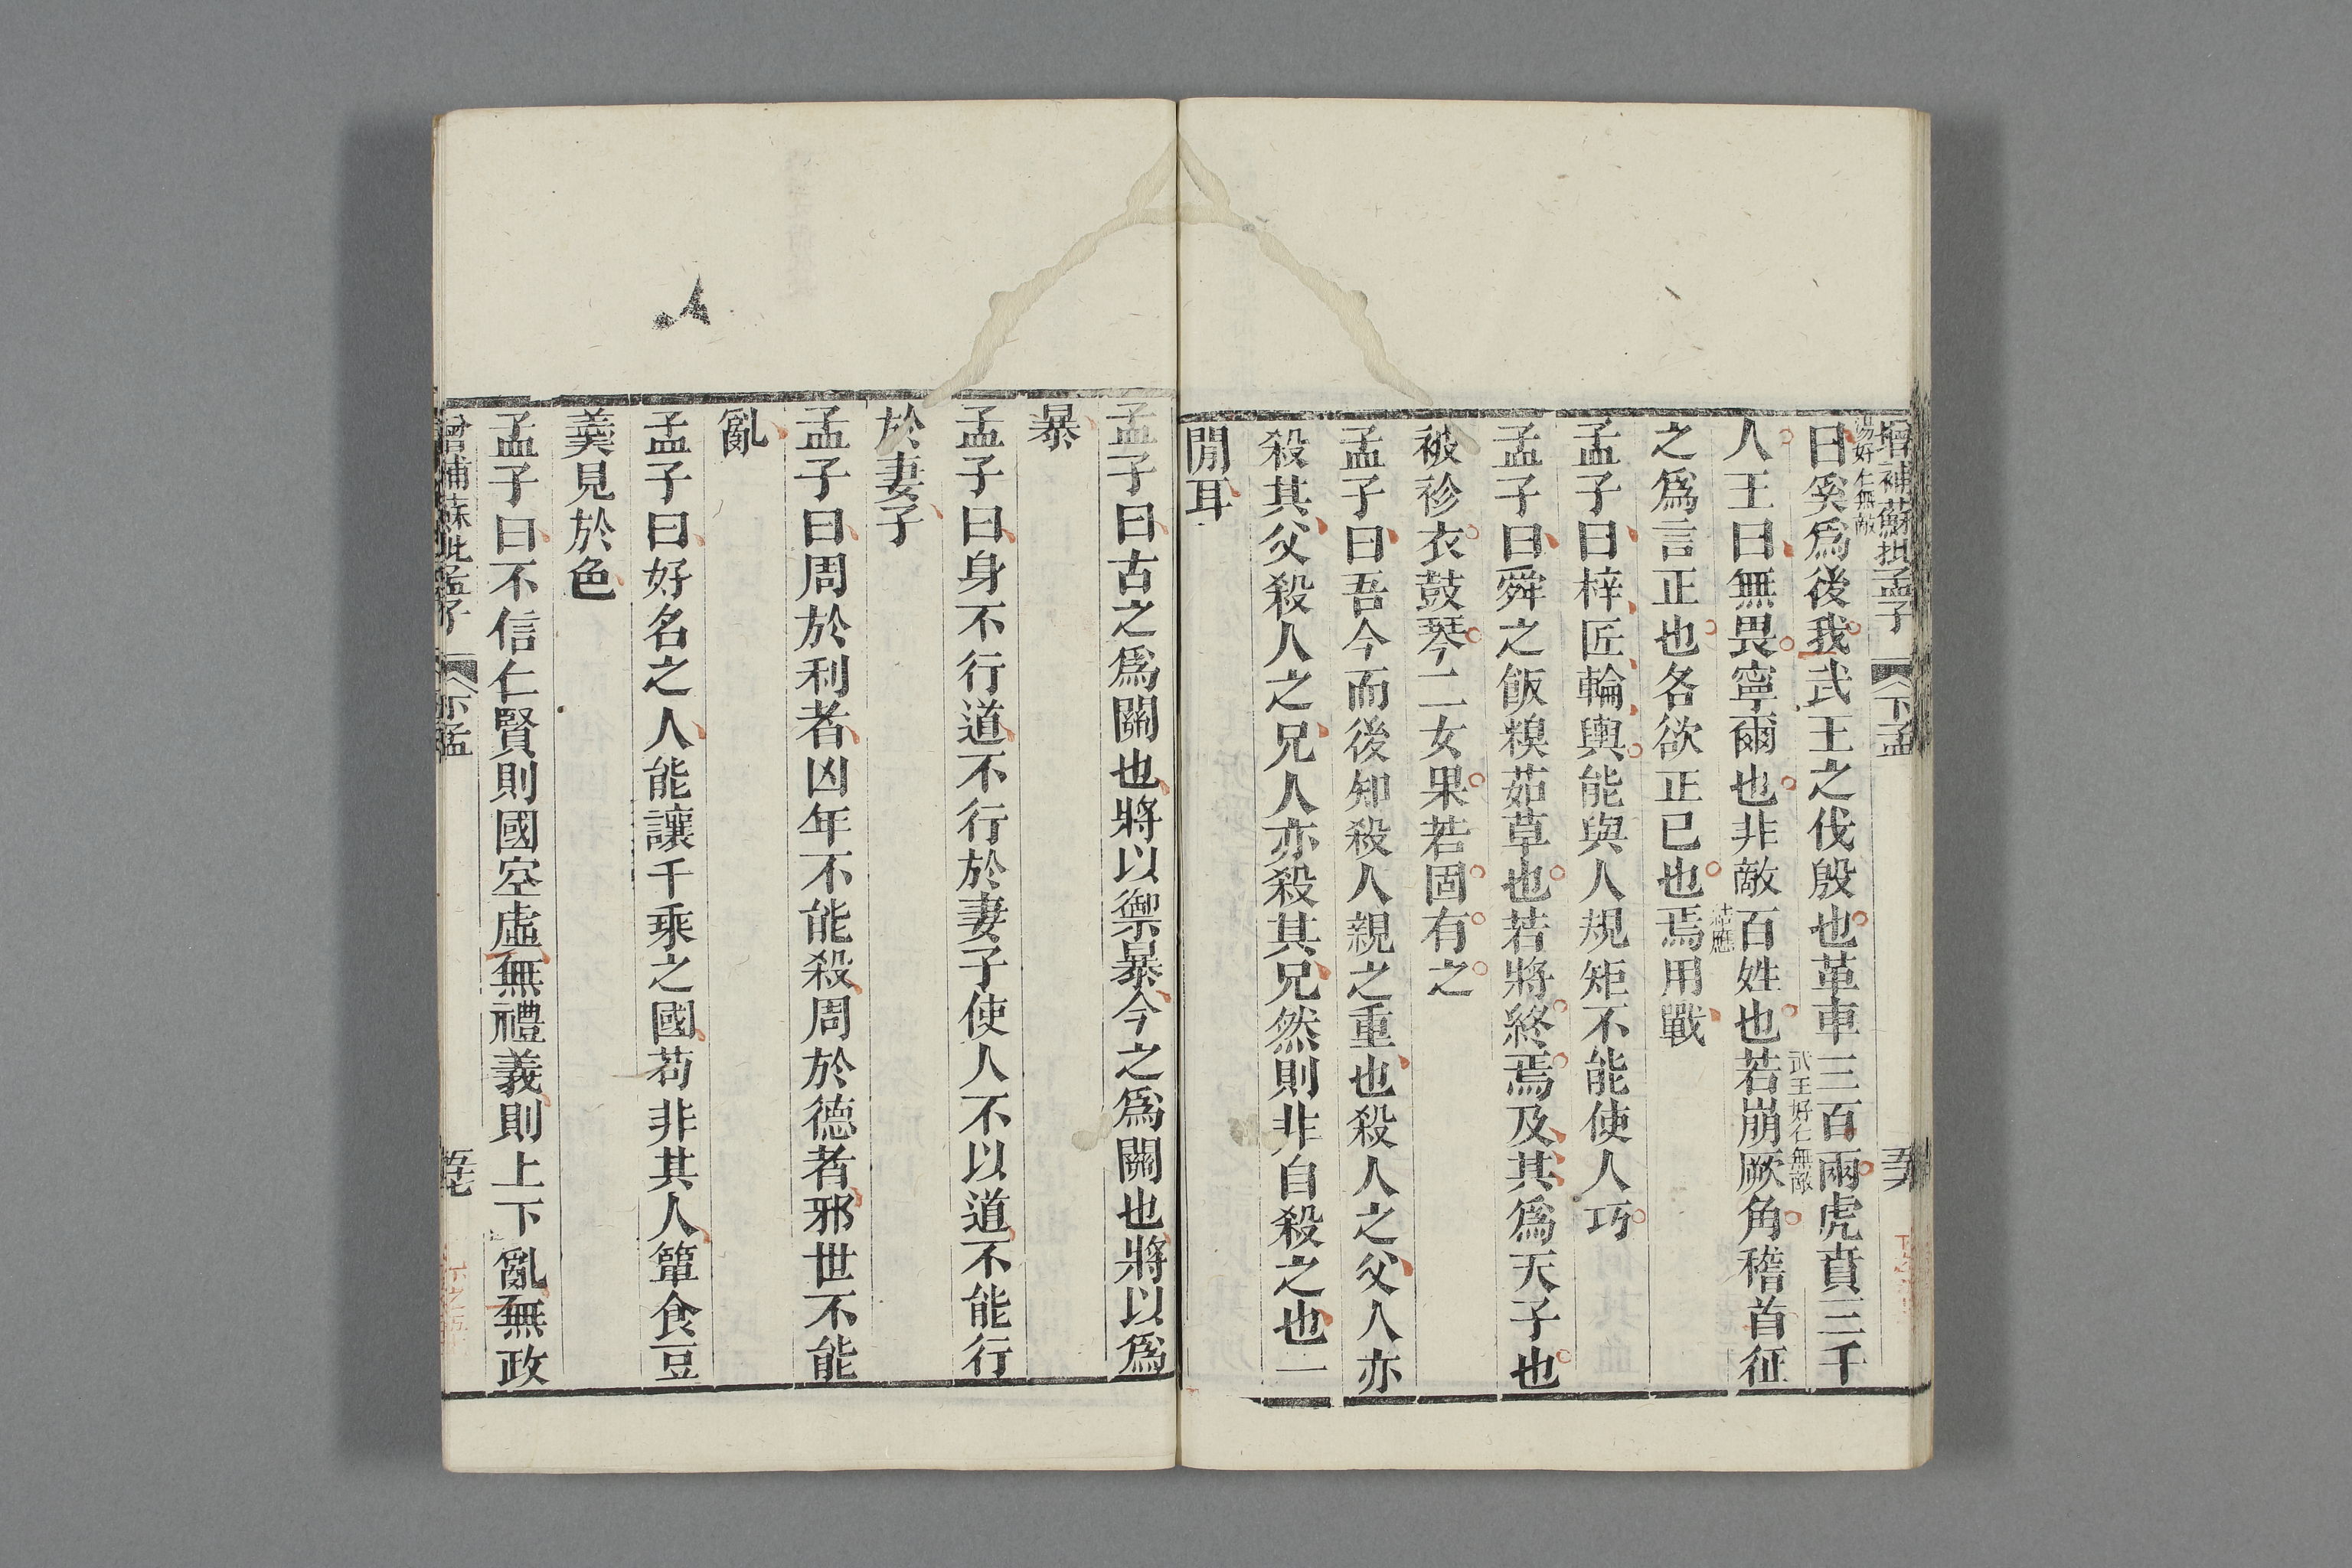 增補蘇批孟子 下孟
湯好仁無敵
曰奚爲後我武王之伐殷也革車三百兩虎賁三千
武王好仁無敵
人王曰無畏寧爾也非敵百姓也若崩厥角稽首征
結應
之爲言正也各欲正已也焉用戰
孟子曰梓匠輪輿能與人規矩不能使人巧
孟子曰舜之飯糗茹草也若將終焉及其爲天子也
被袗衣鼓琴二女果若固有之
孟子曰吾今而後知殺人親之重也殺人之父人亦
殺其父殺人之兄人亦殺其兄然則非自殺之也一
閒耳
孟子曰古之爲關也將以禦暴今之爲關也將以爲
暴
孟子曰身不行道不行於妻子使人不以道不能行
於妻子
孟子曰周於利者凶年不能殺周於德者邪世不能
亂
孟子曰好名之人能讓千乘之國苟非其人簞食豆
羹見於色
孟子曰不信仁賢則國空虛無禮義則上下亂無政
增補蘇批孟子 下孟